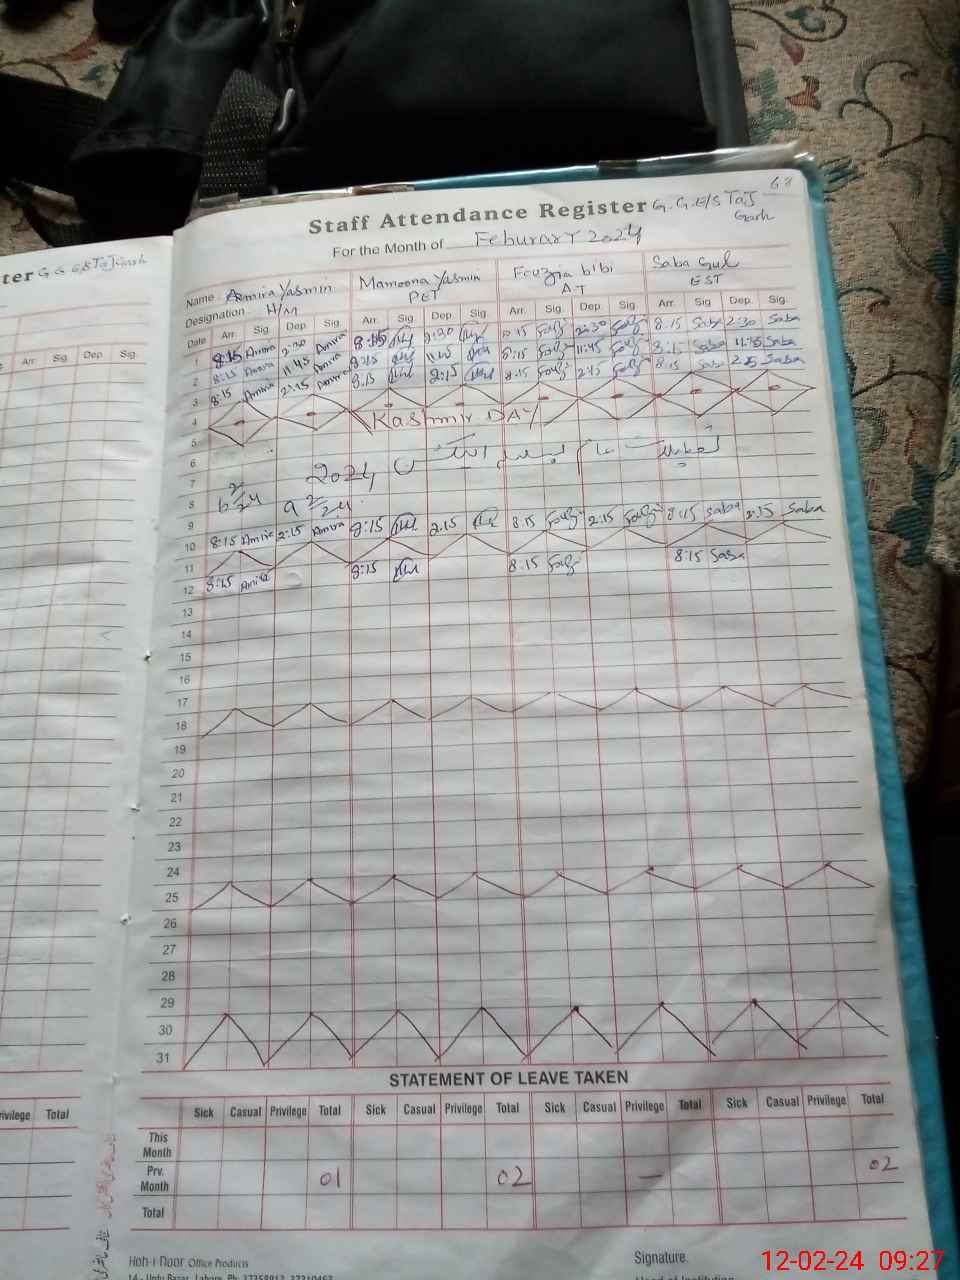 68
Staff Attendance Register G.G.E/S TaJ Garh
For the Month of Feburary 2024
ter G G E/S TaJ Garh
Name: Asmira Yasmin Mamoona Yasmin Fouzia bibi Saba Gul
Designation H/M PET A.T EST
Date Arr. Sig. Dep. Sig. Arr. Sig. Dep. Sig. Arr. Sig. Dep. Sig. Arr. Sig. Dep. Sig.
Arr Sig Dep Sig.
1 8:15 Amira 2:30 Amira 8:15 2:30 8:15 2:30 8:15 Saba 2:30 Saba
2 8:15 Amira 11:45 Amira 8:15 11:45 8:15 11:45 8:15 Saba 11:45 Saba
3 8:15 Amira 2:15 Amira 8:15 2:15 8:15 2:45 8:15 Saba 2:15 Saba
4 Kashmir DAY
5
6
7 2024
8 6 2/24 9 2/24
9
10 8:15 Amira 2:15 Amira 8:15 2:15 8:15 2:15 8:15 Saba 2:15 Saba
11
12 8:15 Amira 8:15 8:15 8:15 Saba
13
14
15
16
17
18
19
20
21
22
23
24
25
26
27
28
29
30
31
STATEMENT OF LEAVE TAKEN
Sick Casual Privilege Total Sick Casual Privilege Total Sick Casual Privilege Total Sick Casual Privilege Total
rivilege Total
This Month
Prv. Month 01 02 — 02
Total
Koh-i-Noor Office Products
14 - Urdu Bazar, Lahore. Ph:
Signature.
Head of Institution
12-02-24 09:27